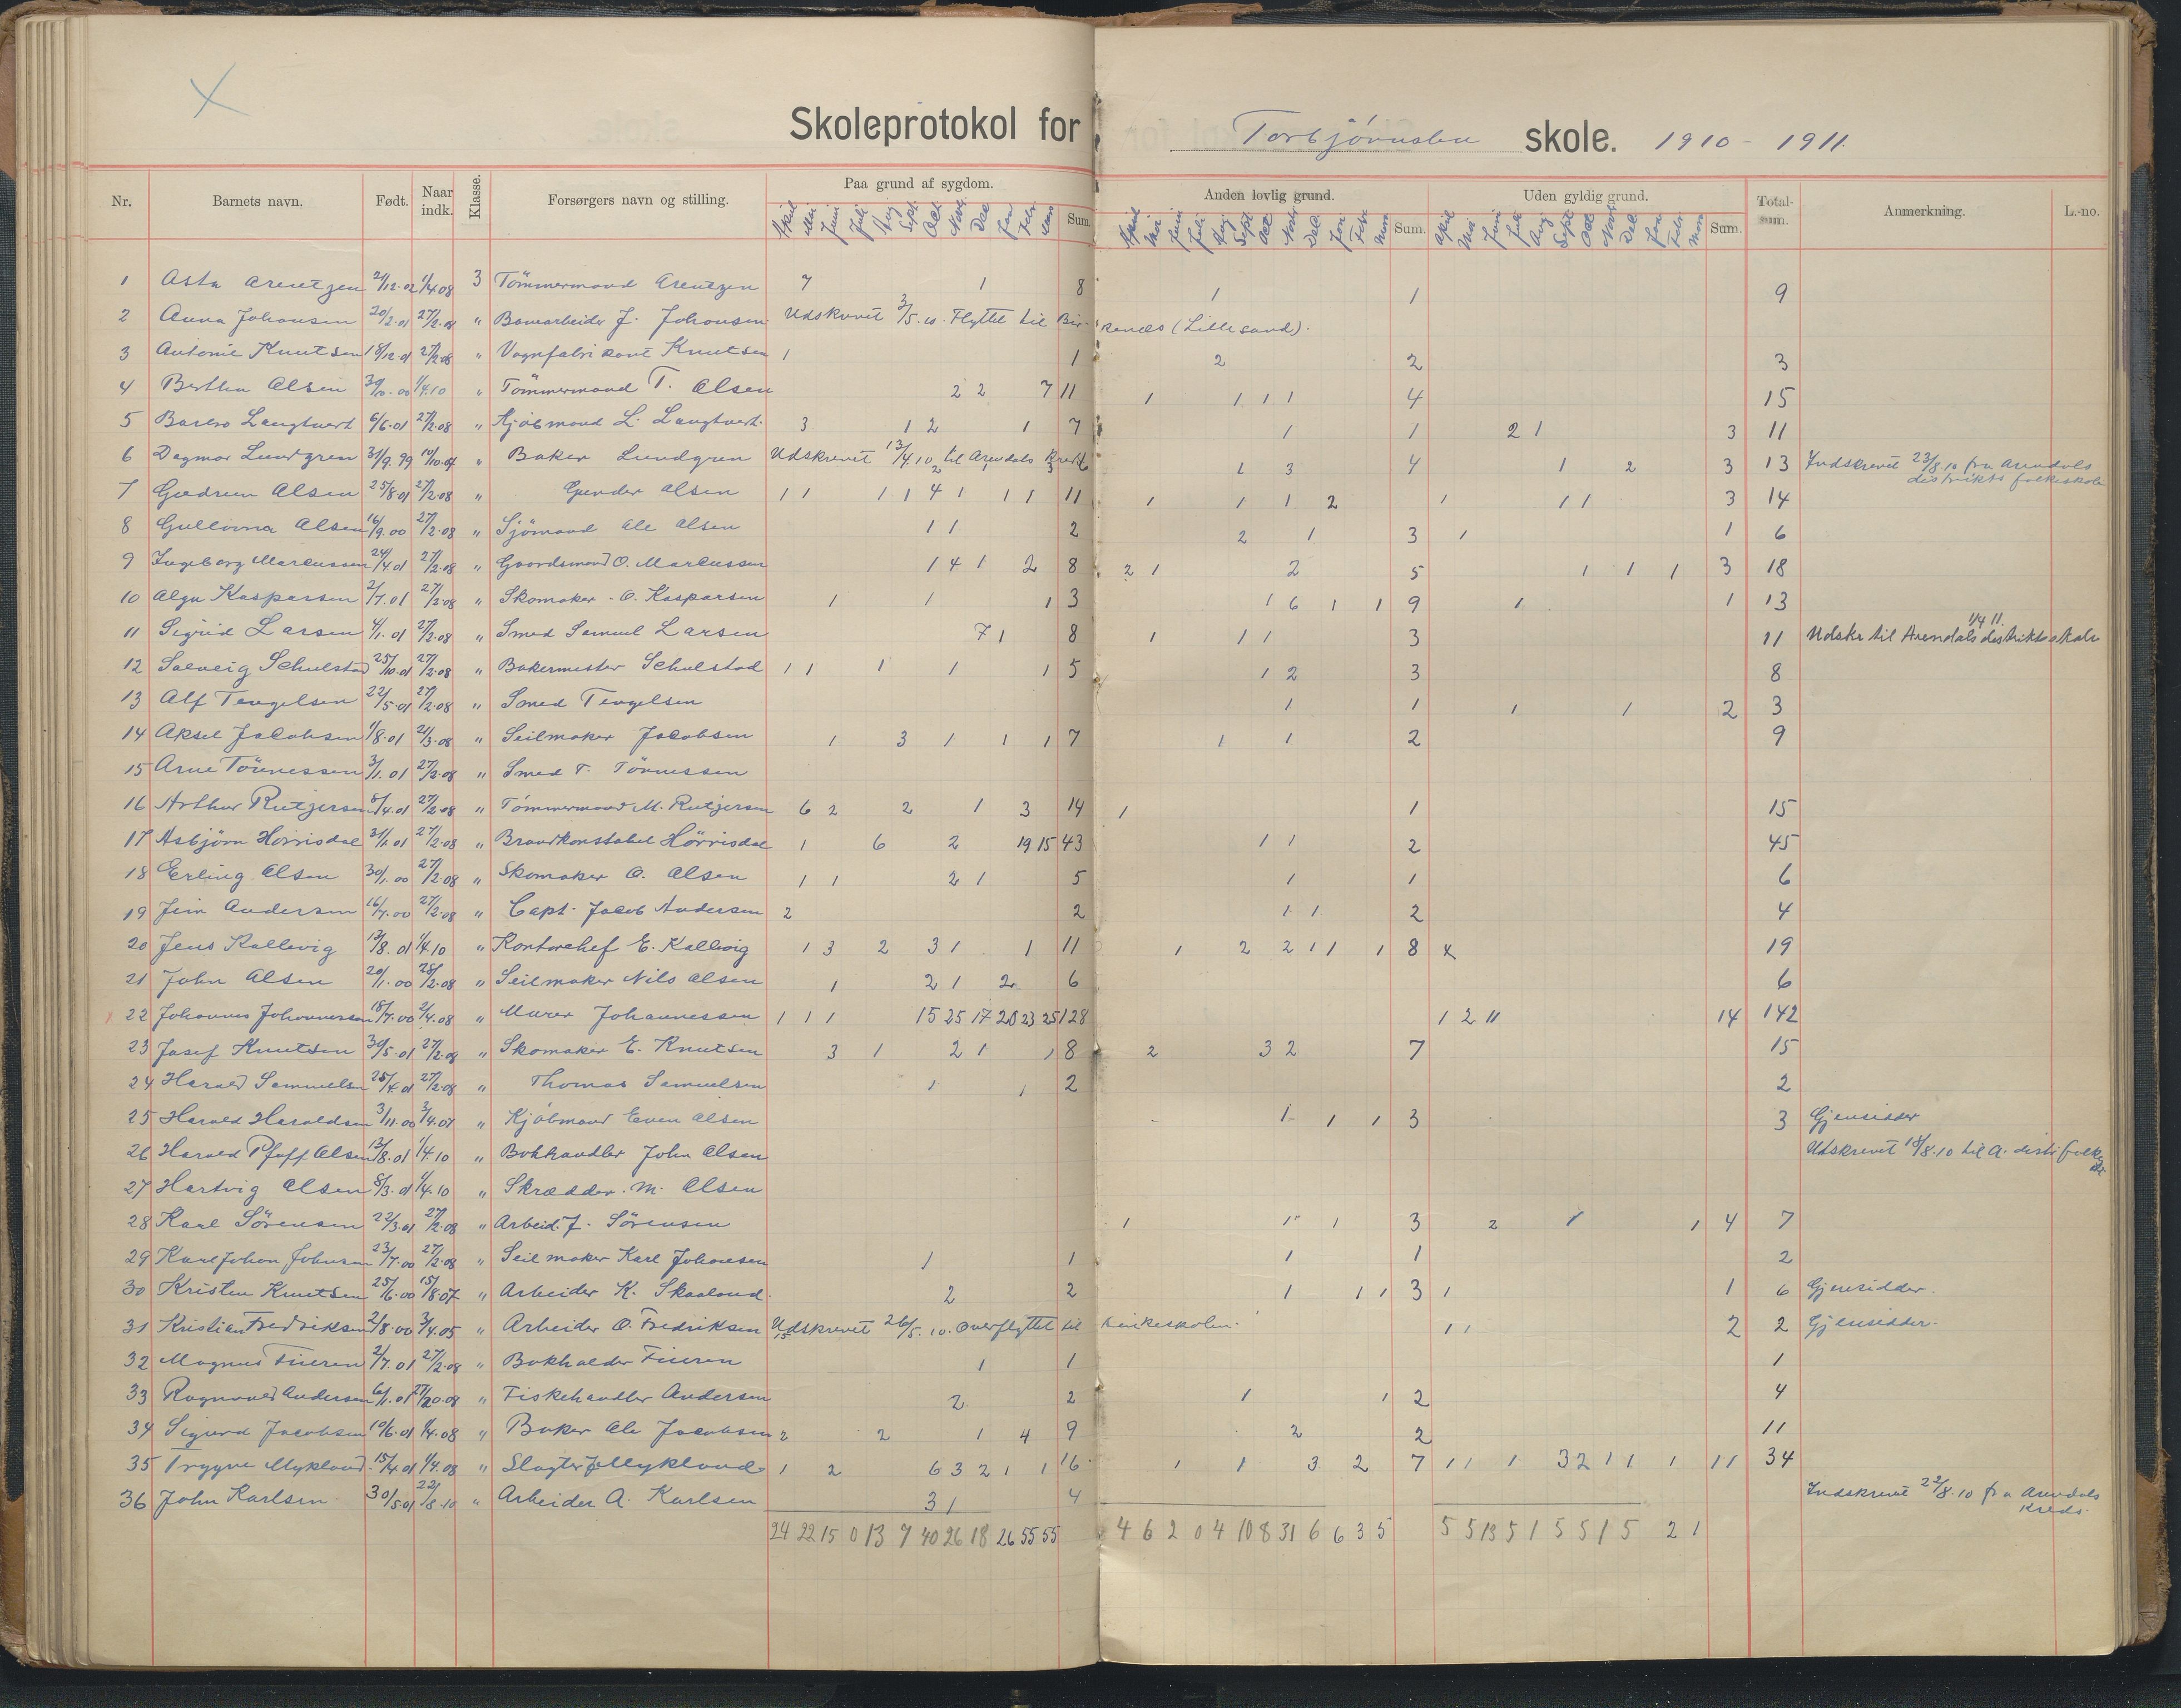 Skoleprotokol for Torbjørnsbu skole. 1910 - 1911.
Nr. Barnets navn. Født. Naar indk. Klasse. Forsørgers navn og stilling. Paa grund af sygdom. Sum Anden lovlig grund. Sum. Uden gyldig grund. Sum. Total-sum. Anmerkning. L.-no.
April Mai Juni Juli Aug Sept Oct Novb Dec Jan Feb Mars
1 Asta Arentzen 21/12.02 1/4.08 3 Tömmermand Arentzen 7 1 8 1 1 9
2 Anna Johansen 20/2.01 27/2.08 " J. Johansen Udskrevet 3/5.10. Flyttet til Birkenæs (Lillesand).
3 Antonie Knutsen 18/12.01 27/2.08 " Vognfabrikant Knutsen 1 1 2 2 3
4 Bertha Olsen 30/10.00 1/4.10 " Tömmermand T. Olsen 2 2 7 11 1 1 1 1 4 15
5 Barbro Langtvert 6/6.01 27/2.08 " Kjöbmand L. Langtvert 3 1 2 1 7 1 1 2 1 3 11
6 Dagmar Lundgren 31/9.99 10/10.07 " Baker Lundgren Udskrevet 13/4.10 til Arendals Kreds 1 3 4 1 2 3 13 Indskrevet 23/8.10 fra Arendals distrikts folkeskole
7 Gudrun Olsen 25/8.01 27/2.08 " Gunder Olsen 1 1 1 1 4 1 1 1 11 1 1 1 2 1 1 1 3 14
8 Gullovna Olsen 16/9.00 27/2.08 " Sjömand Ole Olsen 1 1 2 2 1 3 1 1 6
9 Ingeborg Marcussen 24/4.01 27/2.08 " Gaardsmand O. Marcussen 1 4 1 2 8 2 1 2 5 1 1 1 3 18
10 Olga Kaspersen 2/7.01 27/2.08 " Skomaker O. Kaspersen 1 1 1 3 1 6 1 1 9 1 1 13
11 Sigrid Larsen 4/1.01 27/2.08 " Smed Samuel Larsen 7 1 8 1 1 1 3 11 Udskr til Arendals distriktsskole 1/4 11.
12 Solveig Schulstad 25/10.01 27/2.08 " Bakermester Schulstad 1 1 1 1 1 5 1 2 3 8
13 Alf Tengelsen 22/5.01 27/2.08 " Smed Tengelsen 1 1 1 1 2 3
14 Aksel Jacobsen 1/8.01 21/3.08 " Seilmaker Jacobsen 1 3 1 1 1 7 1 1 2 9
15 Arne Tönnessen 3/1.01 27/2.08 " Smed T. Tönnessen
16 Arthur Rutgersen 8/4.01 27/2.08 " Tömmermand M. Rutgersen 6 2 2 1 3 14 1 1 15
17 Asbjörn Hörrisdal 31/1.01 27/2.08 " Brandkonstabel Hörrisdal 1 6 2 19 15 43 1 1 2 45
18 Erling Olsen 30/1.00 27/2.08 " Skomaker O. Olsen 1 1 2 1 5 1 1 6
19 Jim Andersen 16/7.00 27/2.08 " Capt. Jacob Andersen 2 2 1 1 2 4
20 Jens Kallevig 12/8.01 1/4.10 " Kontorchef E. Kallevig 1 3 2 3 1 1 11 1 2 2 1 1 1 8 x 19
21 John Olsen 20/1.00 28/2.08 " Seilmaker Nils Olsen 1 2 1 2 6 6
22 Johannes Johannessen 18/7.00 2/4.08 " Murer Johannessen 1 1 1 15 25 17 20 23 25 128 1 2 11 14 142
23 Josef Knutsen 30/5.01 27/2.08 " Skomaker E. Knutsen 3 1 2 1 1 8 2 3 2 7 15
24 Harald Samuelsen 25/4.01 27/2.08 " Thomas Samuelsen 1 1 2 2
25 Harald Haraldsen 3/11.00 3/4.07 " Kjöbmand Even Olsen 1 1 1 3 3 Gjensidder
26 Harald Pfaff Olsen 13/8.01 1/4.10 " Bokhandler John Olsen Udskrevet 18/8.10 til A. distr. folkesk.
27 Hartvig Olsen 8/3.01 1/4.10 " Skrædder M. Olsen
28 Karl Sörensen 22/3.01 27/2.08 " Arbeid. J. Sörensen 1 1 1 3 2 1 1 4 7
29 Karl Johan Johansen 23/7.00 27/2.08 " Seilmaker Karl Johansen 1 1 1 1 2
30 Kristen Knutsen 25/6.00 15/8.07 " Arbeider K. Skaaland 2 2 1 1 1 3 1 1 6 Gjensidder.
31 Kristian Fredriksen 2/8.00 3/4.05 " Arbeider O. Fredriksen Udskrevet 26/5.10. Overflyttet til 1 1 2 2 Gjensidder.
32 Magnus Fiieren 2/7.01 27/2.08 " Bokholder Fiieren 1 1 1
33 Ragnvald Andersen 6/1.01 " Fiskehandler Andersen 2 2 1 1 2 4
34 Sigurd Jacobsen 10/6.01 1/4.08 " Baker Ole Jacobsen 2 2 1 4 9 2 2 11
35 Trygve Mykland 15/4.01 1/4.08 " Slagter Mykland 1 2 6 3 2 1 1 16 1 1 3 2 7 1 1 1 3 2 1 1 1 11 34
36 John Karlsen 30/5.01 22/8.10 " Arbeider A. Karlsen 3 1 4 Indskrevet 22/8.10 fra Arendals Kreds.
24 22 15 0 13 7 40 26 18 26 55 55 4 6 2 0 4 10 8 31 6 6 3 5 5 5 13 5 1 5 5 1 5 2 1